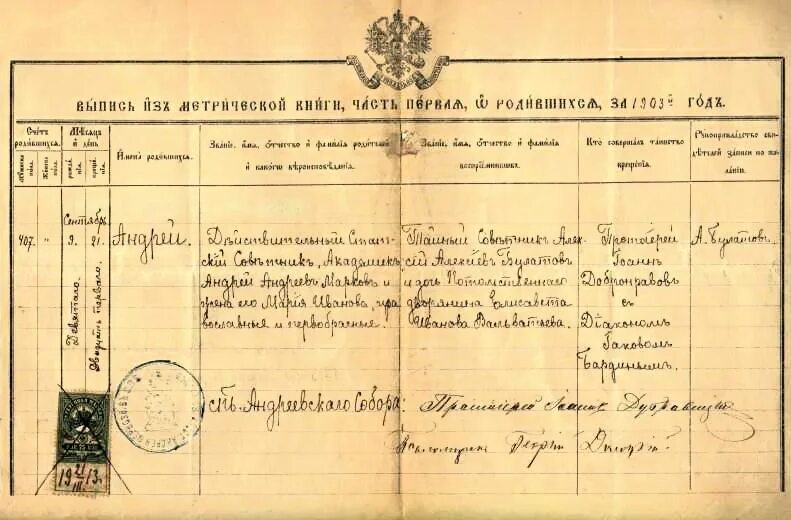 Выпись изъ метрической книги, часть первая, ѡ родившихся, за 1903й годъ.
Счетъ родившихся.
Мѣсяцъ и день
Имена родившихся.
Званіе, имя, отчество и фамилія родителей
и какого вѣроисповѣданія.
Званіе, имя, отчество и фамилія
воспріемниковъ.
Кто совершалъ таинство
крещенія.
Рукоприкладство сви-
дѣтелей записи по же-
ланію.
Мужеска пола.
Женска пола.
рожденія.
крещенія.
407.
"
Сентябрь
9.
21.
Девятаго.
Двадцать перваго.
Андрей.
Дѣйствительный Статс-
кій Совѣтникъ, Академикъ
Андрей Андреевъ Марковъ и
жена его Марія Иванова, пра
вославные и первобрачные.
Тайный Совѣтникъ Алек-
сій Алексіевъ Булатовъ
и дочь Потомственнаго
дворянина Елисавета
Иванова Вальватьева.
Протоіерей
Іоаннъ
Добронравовъ
съ
Діакономъ
Іаковомъ
А. Булатовъ.
СПб. Андреевскаго Собора:
Протоіерей Іоаннъ
Георгій
19 21/III 13.